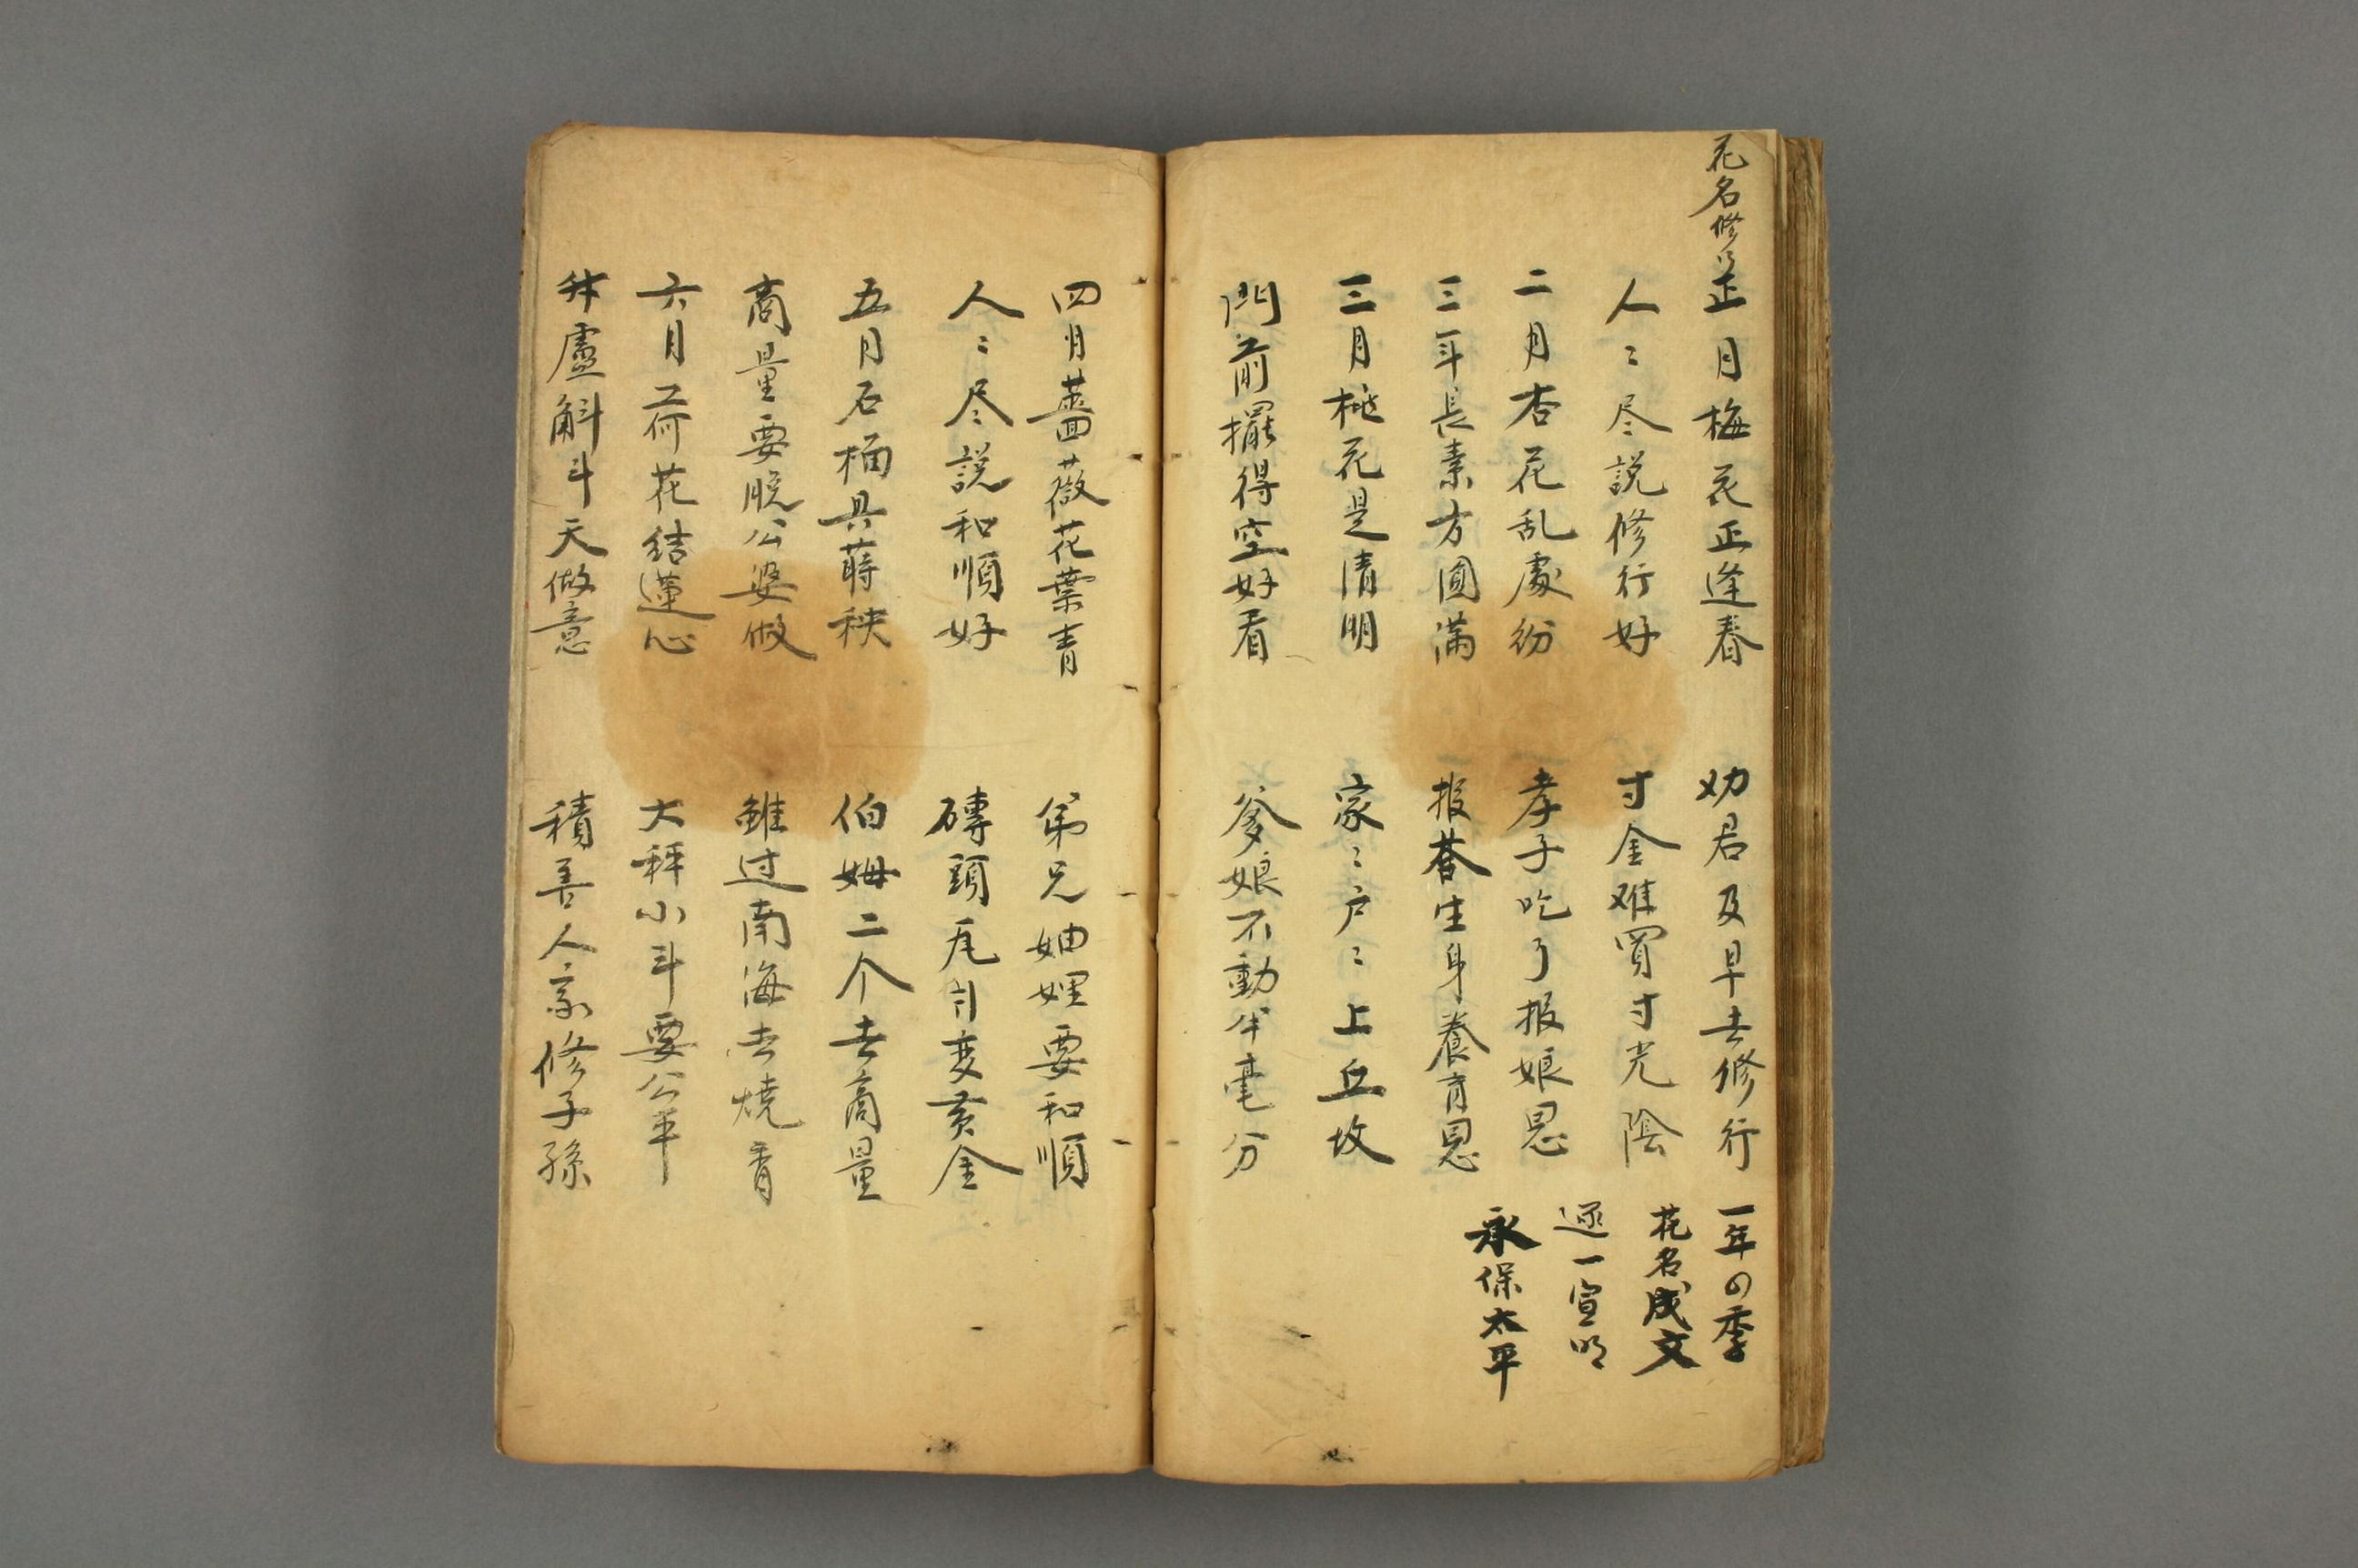 花名修行
正月梅花正逢春 劝君及早去修行
人〻尽説修行好 寸金难買寸光陰
二月杏花乱處纷 孝子吃了报娘恩
三年長素方圓滿 报荅生身養育恩
三月桃花是清明 家〻户〻上丘坟
門前擺得空好看 爹娘不動半毫分
一年四季
花名成文
逐一宣明
永保太平
四月薔薇花葉青 弟兄妯娌要和順
人〻尽説和順好 磚頭瓦片变黄金
五月石榴共蒔秧 伯姆二个去商量
商量要脱公婆做 雖过南海去燒香
六月荷花結蓮心 大秤小斗要公平
升虚斛斗天做意 積善人家修子孫